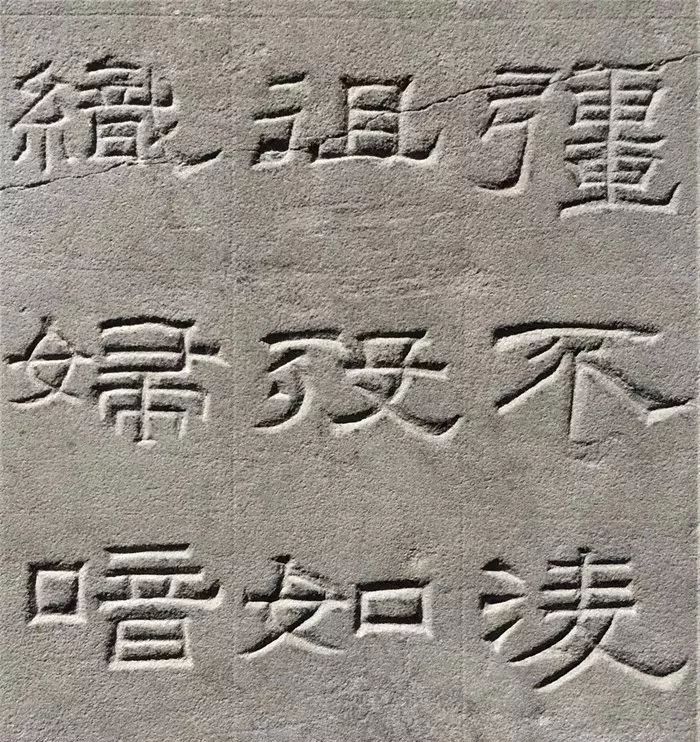 彊不淩
祖歿如
織婦喑